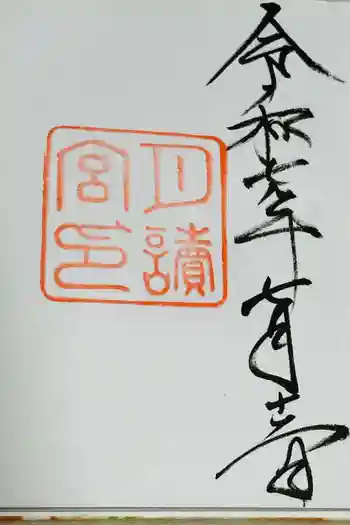 令和年七月日
月讀
宮印